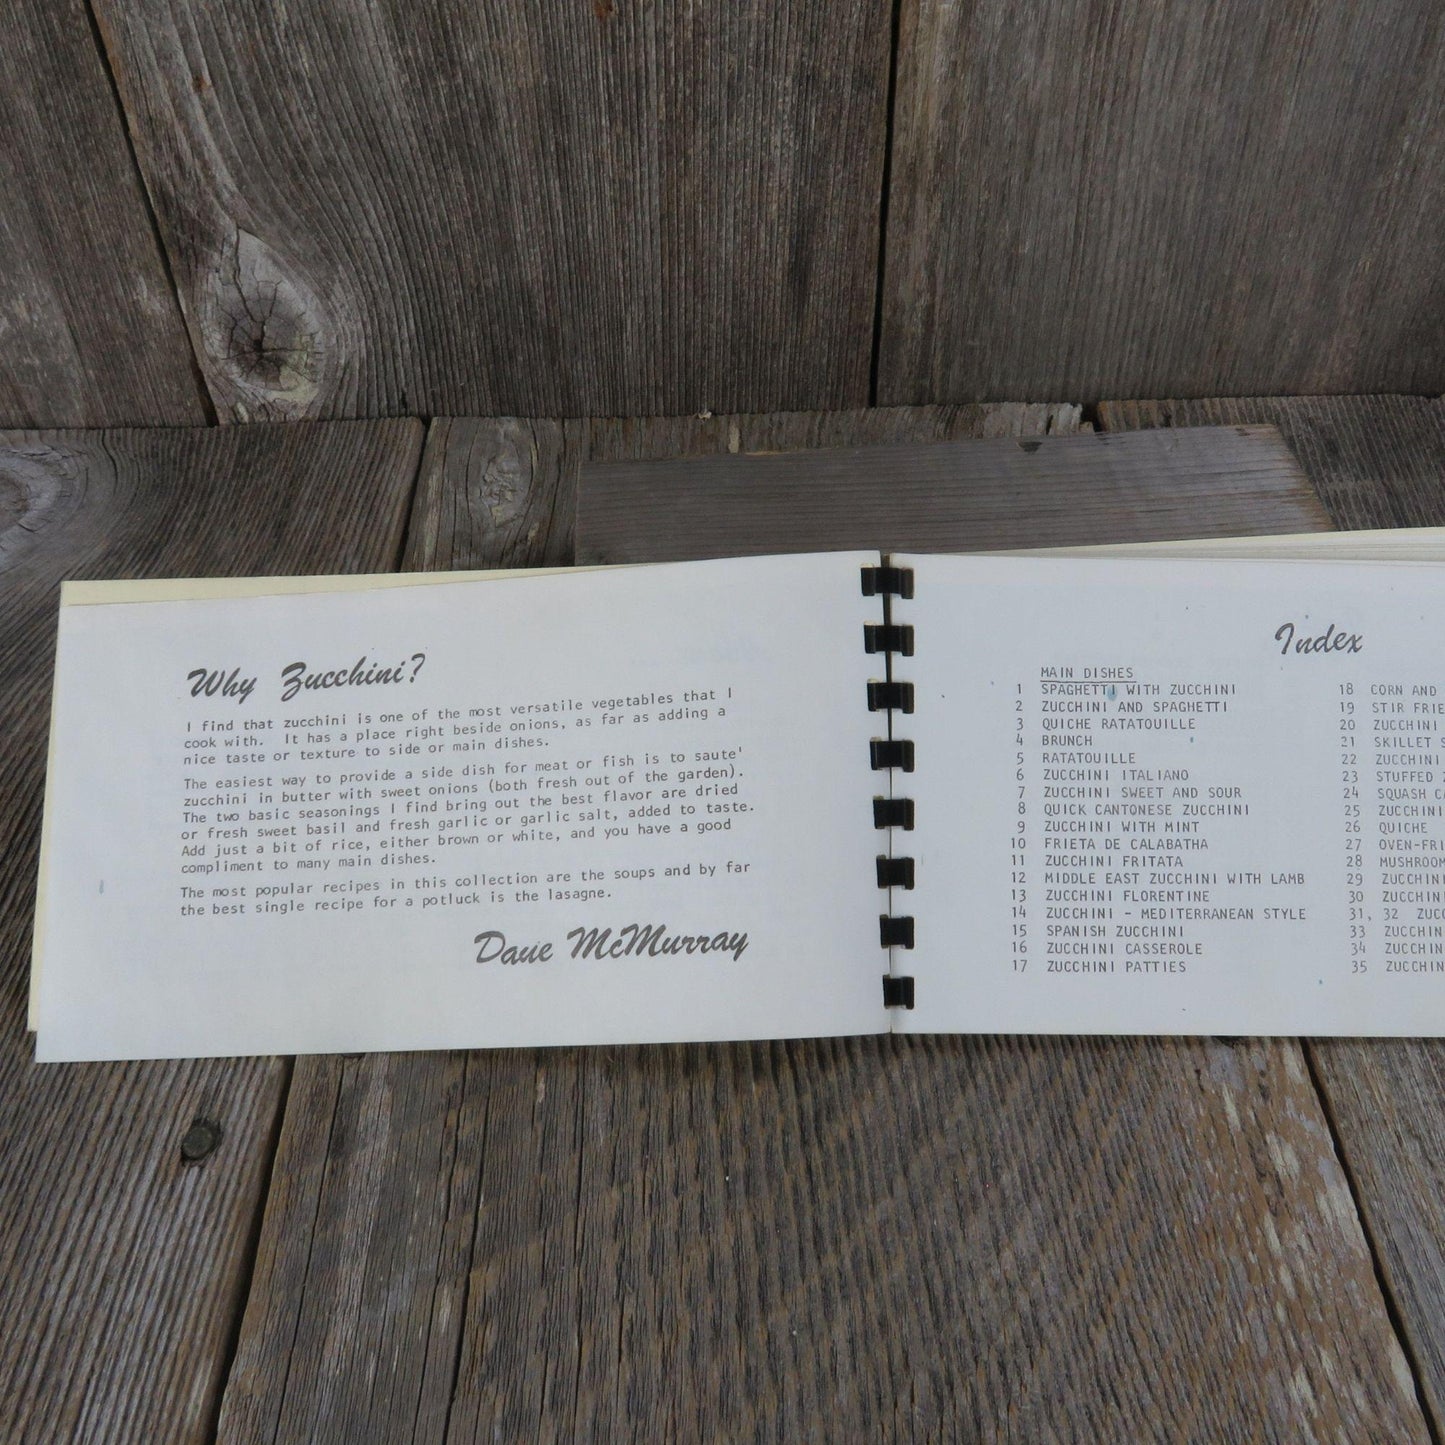 Why Zucchini?
I find that zucchini is one of the most versatile vegetables that I
cook with. It has a place right beside onions, as far as adding a
nice taste or texture to side or main dishes.
The easiest way to provide a side dish for meat or fish is to saute'
zucchini in butter with sweet onions (both fresh out of the garden).
The two basic seasonings I find bring out the best flavor are dried
or fresh sweet basil and fresh garlic or garlic salt, added to taste.
Add just a bit of rice, either brown or white, and you have a good
compliment to many main dishes.
The most popular recipes in this collection are the soups and by far
the best single recipe for a potluck is the lasagne.
Dave McMurray
Index
MAIN DISHES
1 SPAGHETTI WITH ZUCCHINI
2 ZUCCHINI AND SPAGHETTI
3 QUICHE RATATOUILLE
4 BRUNCH
5 RATATOUILLE
6 ZUCCHINI ITALIANO
7 ZUCCHINI SWEET AND SOUR
8 QUICK CANTONESE ZUCCHINI
9 ZUCCHINI WITH MINT
10 FRIETA DE CALABATHA
11 ZUCCHINI FRITATA
12 MIDDLE EAST ZUCCHINI WITH LAMB
13 ZUCCHINI FLORENTINE
14 ZUCCHINI - MEDITERRANEAN STYLE
15 SPANISH ZUCCHINI
16 ZUCCHINI CASSEROLE
17 ZUCCHINI PATTIES
18 CORN AND
19 STIR FRIE
20 ZUCCHINI
21 SKILLET S
22 ZUCCHINI
23 STUFFED
24 SQUASH CA
25 ZUCCHINI
26 QUICHE
27 OVEN-FRI
28 MUSHROOM
29 ZUCCHINI
30 ZUCCHINI
31, 32 ZUCC
33 ZUCCHIN
34 ZUCCHIN
35 ZUCCHIN